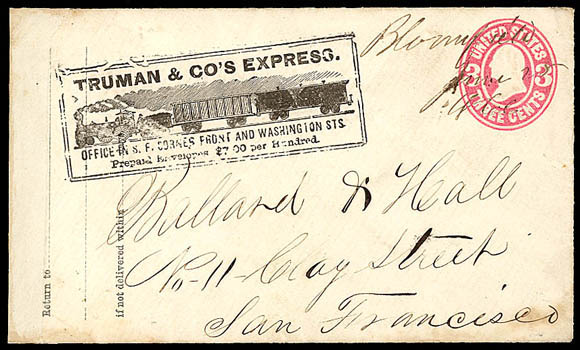 TRUMAN & CO'S EXPRESS.
OFFICE IN S. F. CORNER FRONT AND WASHINGTON STS.
Prepaid Envelopes $7.00 per Hundred.
UNITED STATES
3 3
THREE CENTS
June 25
Ballard & Hall
No 11 Clay Street
San Francisco
Return to
if not delivered within